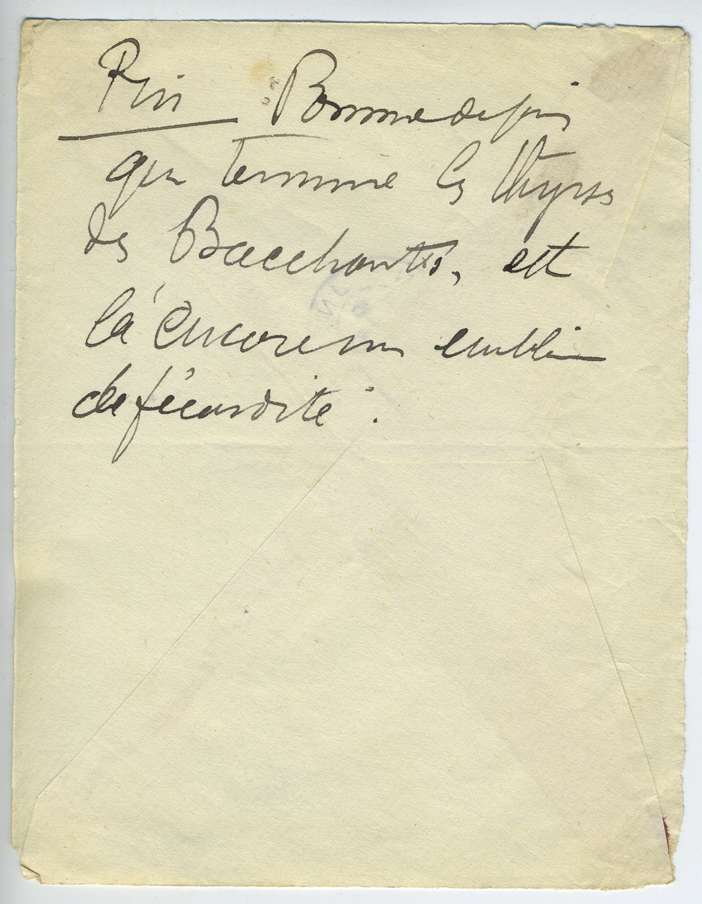 Pin Pomme de pin
qui termine les thyrses
des Bacchantes, est
là encore un emblème
de fécondité.